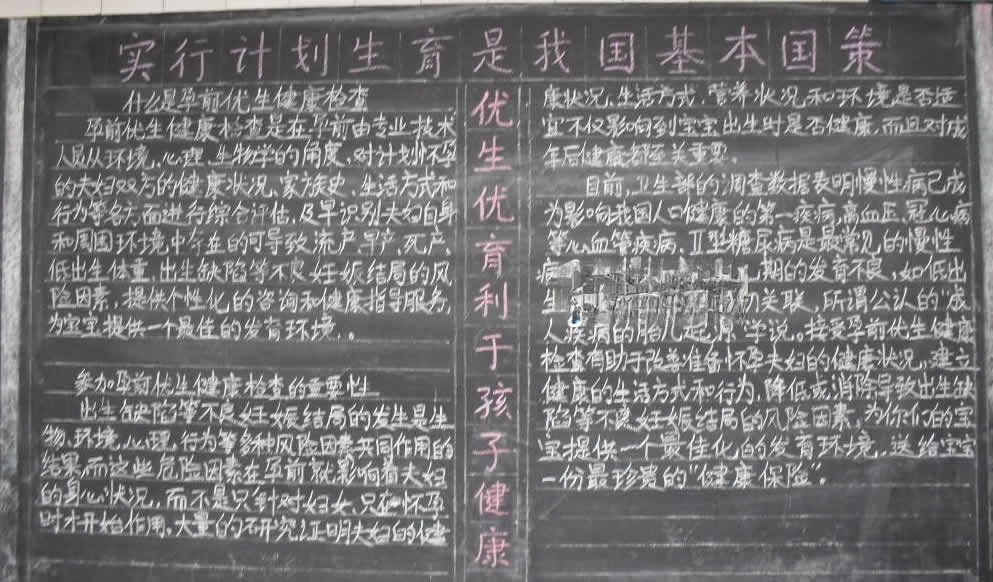 实行计划生育是我国基本国策
什么是孕前优生健康检查
孕前优生健康检查是在孕前由专业技术
人员从环境、心理、生物学的角度，对计划怀孕
的夫妇双方的健康状况、家族史、生活方式和
行为等各方面进行综合评估，及早识别夫妇自身
和周围环境中存在的可导致流产、早产、死产、
低出生体重、出生缺陷等不良妊娠结局的风
险因素，提供个性化的咨询和健康指导服务，
为宝宝提供一个最佳的发育环境。
参加孕前优生健康检查的重要性
出生缺陷等不良妊娠结局的发生是生
物、环境、心理、行为等多种风险因素共同作用的
结果，而这些危险因素在孕前就影响着夫妇
的身心状况，而不是只针对妇女，只在怀孕
时才开始作用。大量的研究证明夫妇的健
优生优育利于孩子健康
康状况、生活方式、营养状况和环境是否适
宜不仅影响到宝宝出生时是否健康，而且对成
年后健康都至关重要。
目前，卫生部的调查数据表明慢性病已成
为影响我国人口健康的第一疾病，高血压、冠心病
等心血管疾病、II型糖尿病是最常见的慢性
病 期的发育不良，如低出
生 切关联，所谓公认的“成
人疾病的胎儿起源”学说。接受孕前优生健康
检查有助于改善准备怀孕夫妇的健康状况，建立
健康的生活方式和行为，降低或消除导致出生缺
陷等不良妊娠结局的风险因素，为你们的宝
宝提供一个最佳化的发育环境，送给宝宝
一份最珍贵的“健康保险”。